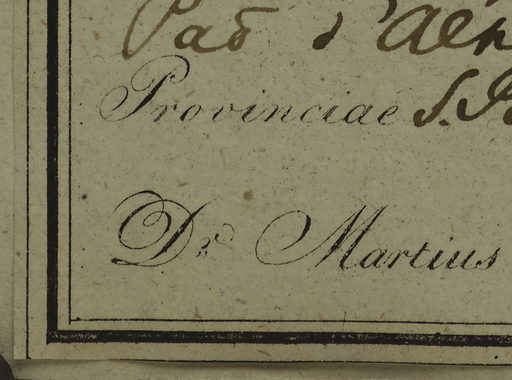 Pao d'
Provinciae S.
Dr. Martius